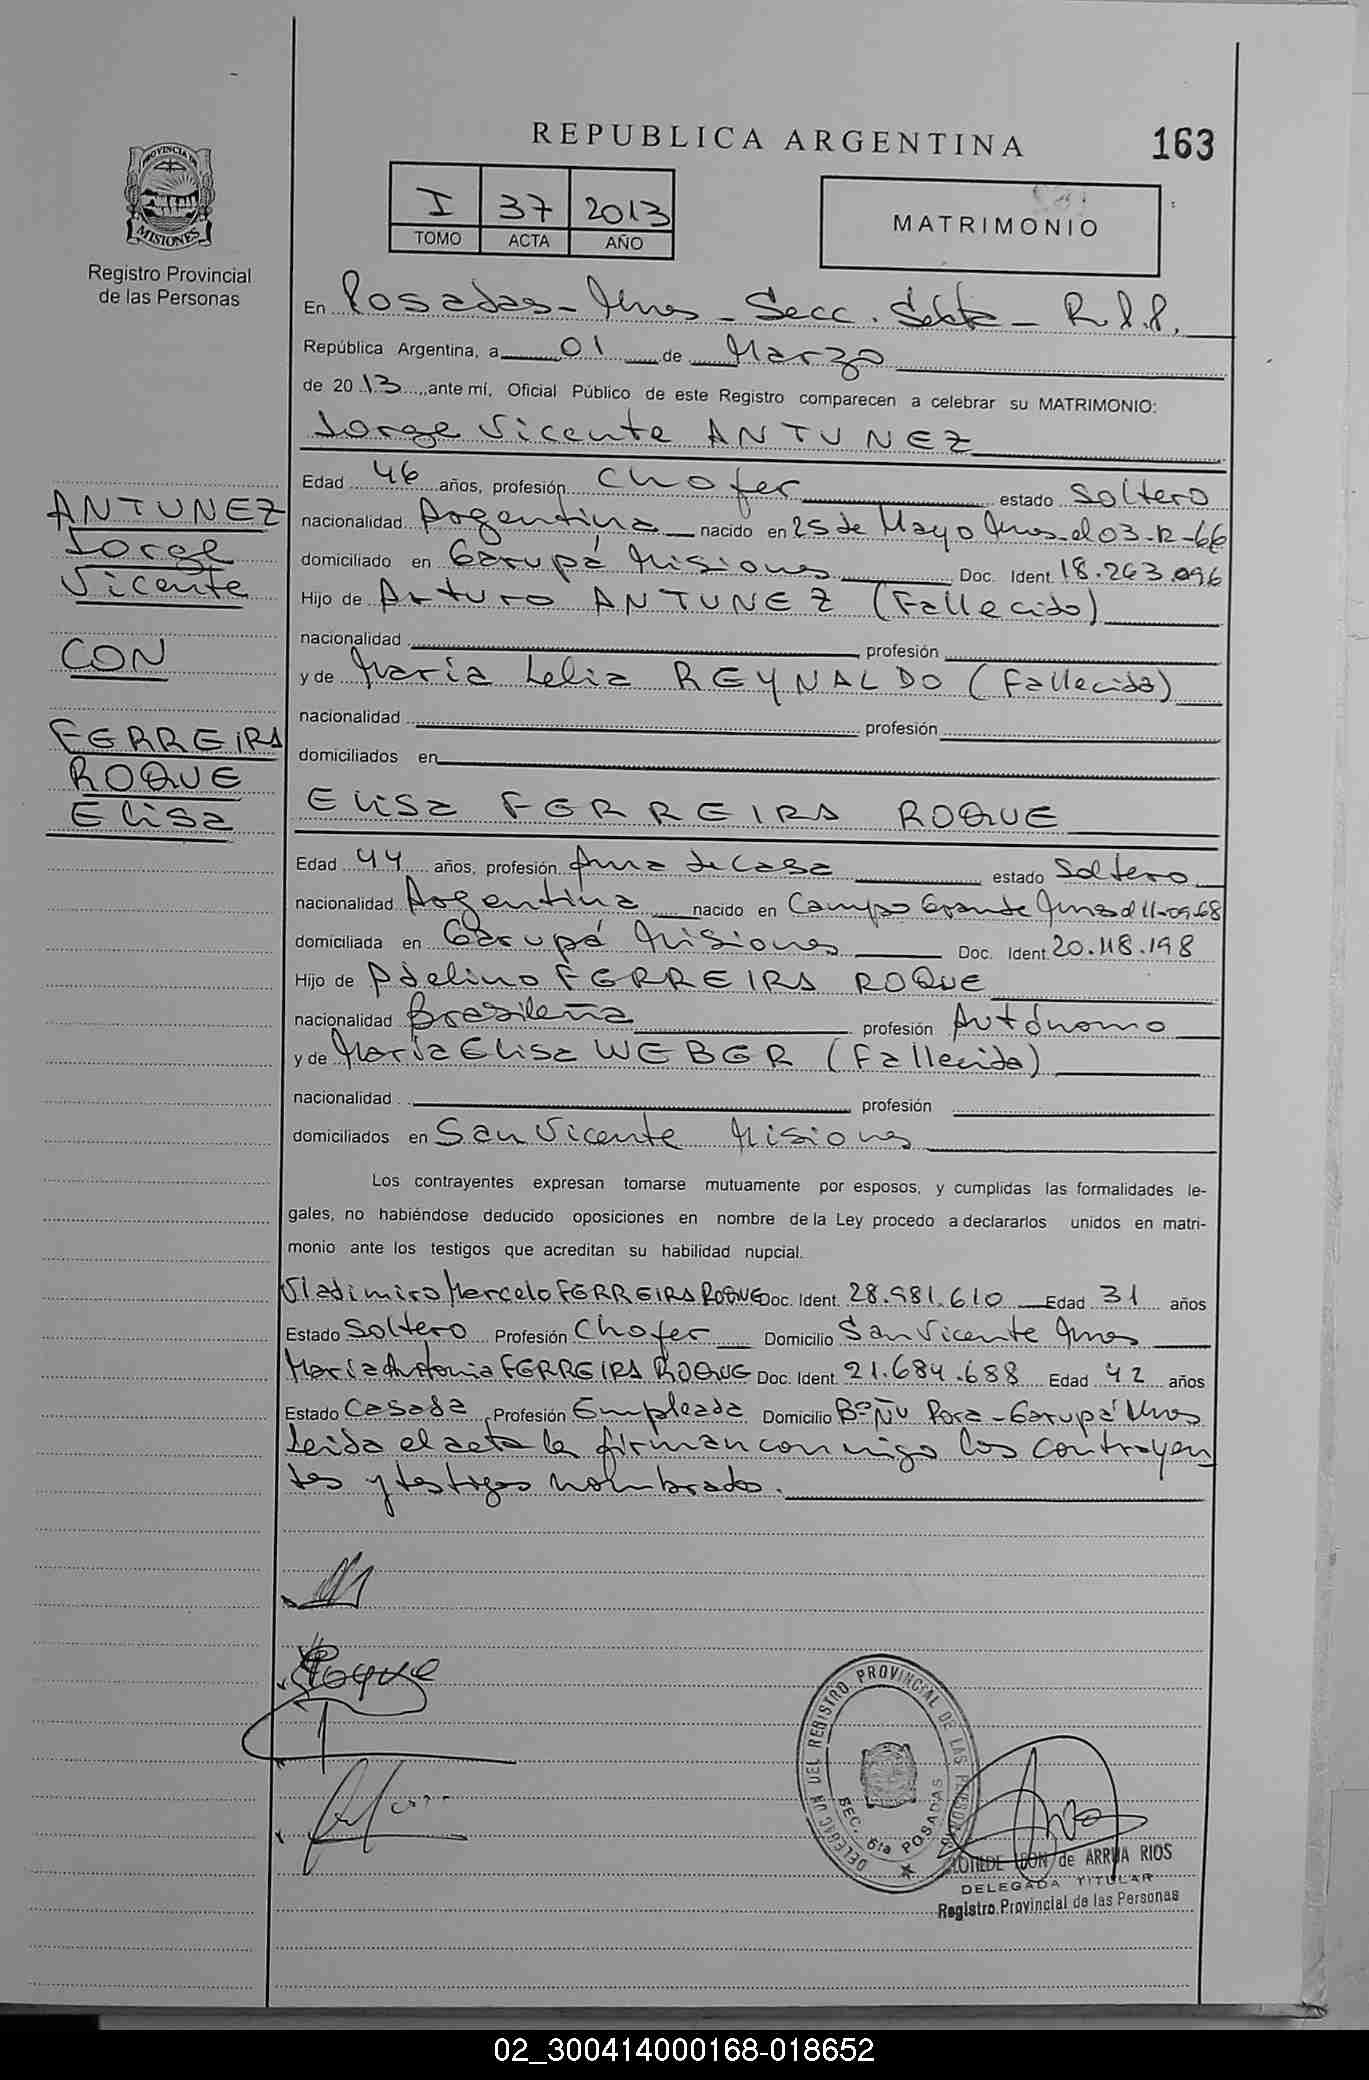 REPUBLICA ARGENTINA
163
PROVINCIA DE
MISIONES
Registro Provincial
de las Personas
I 37 2013
TOMO ACTA AÑO
MATRIMONIO
En Posadas - Mnes - Secc. Sexta - R.P.P.
República Argentina, a 01 de Marzo
de 2013, ante mí, Oficial Público de este Registro comparecen a celebrar su MATRIMONIO:
Jorge Vicente ANTUNEZ
Edad 46 años, profesión Chofer estado Soltero
nacionalidad Argentina nacido en 25 de Mayo Mnes el 03-12-66
domiciliado en Garupá Misiones Doc. Ident. 18.263.096
Hijo de Arturo ANTUNEZ (Fallecido)
nacionalidad profesión
y de María Lelia REYNALDO (Fallecida)
nacionalidad profesión
domiciliados en
ANTUNEZ
Jorge
Vicente
CON
FERREIRA
ROQUE
Elisa
Elisa FERREIRA ROQUE
Edad 44 años, profesión Ama de Casa estado Soltero
nacionalidad Argentina nacido en Campo Grande Mnes el 11-09-68
domiciliada en Garupá Misiones Doc. Ident. 20.118.198
Hijo de Adelino FERREIRA ROQUE
nacionalidad Brasileña profesión Autónomo
y de María Elisa WEBER (Fallecida)
nacionalidad profesión
domiciliados en San Vicente Misiones
Los contrayentes expresan tomarse mutuamente por esposos, y cumplidas las formalidades le-
gales, no habiéndose deducido oposiciones en nombre de la Ley procedo a declararlos unidos en matri-
monio ante los testigos que acreditan su habilidad nupcial.
Vladimiro Marcelo FERREIRA ROQUE Doc. Ident. 28.981.610 Edad 31 años
Estado Soltero Profesión Chofer Domicilio San Vicente Mnes
María Antonia FERREIRA ROQUE Doc. Ident. 21.684.688 Edad 42 años
Estado Casada Profesión Empleada Domicilio Bº Ñu Pora - Garupá Mnes
Leida el acta la firman conmigo los contrayen
tes y testigos nombrado.
Roque
DEL REGISTRO PROVINCIAL DE LAS PERSONAS
SEC. 6ta POSADAS
de ARRUA RIOS
DELEGADA TITULAR
Registro Provincial de las Personas
02_300414000168-018652